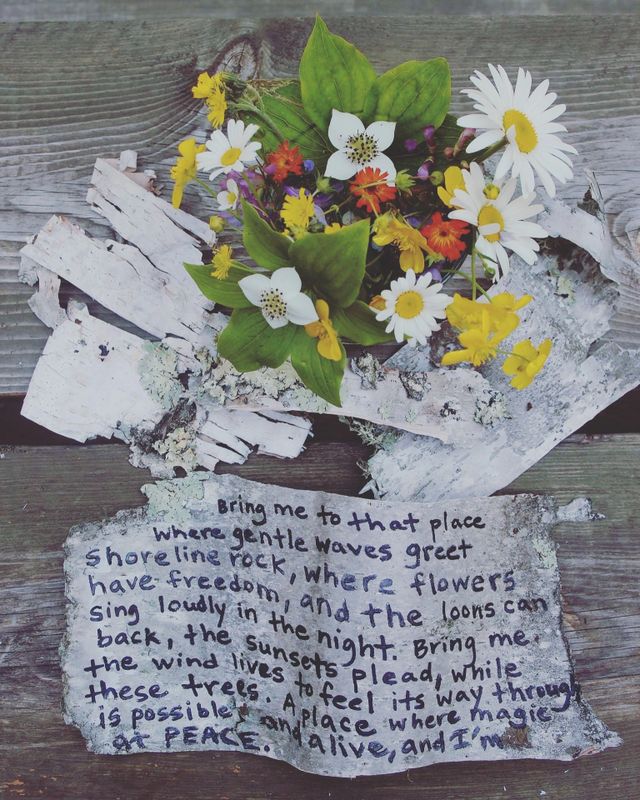 Bring me to that place
where gentle waves greet
shoreline rock, where flowers
have freedom, and the loons can
sing loudly in the night. Bring me
back, the sunsets plead, while
the wind lives to feel its way through
these trees. A place where magic
is possible, and alive, and I'm
at PEACE.